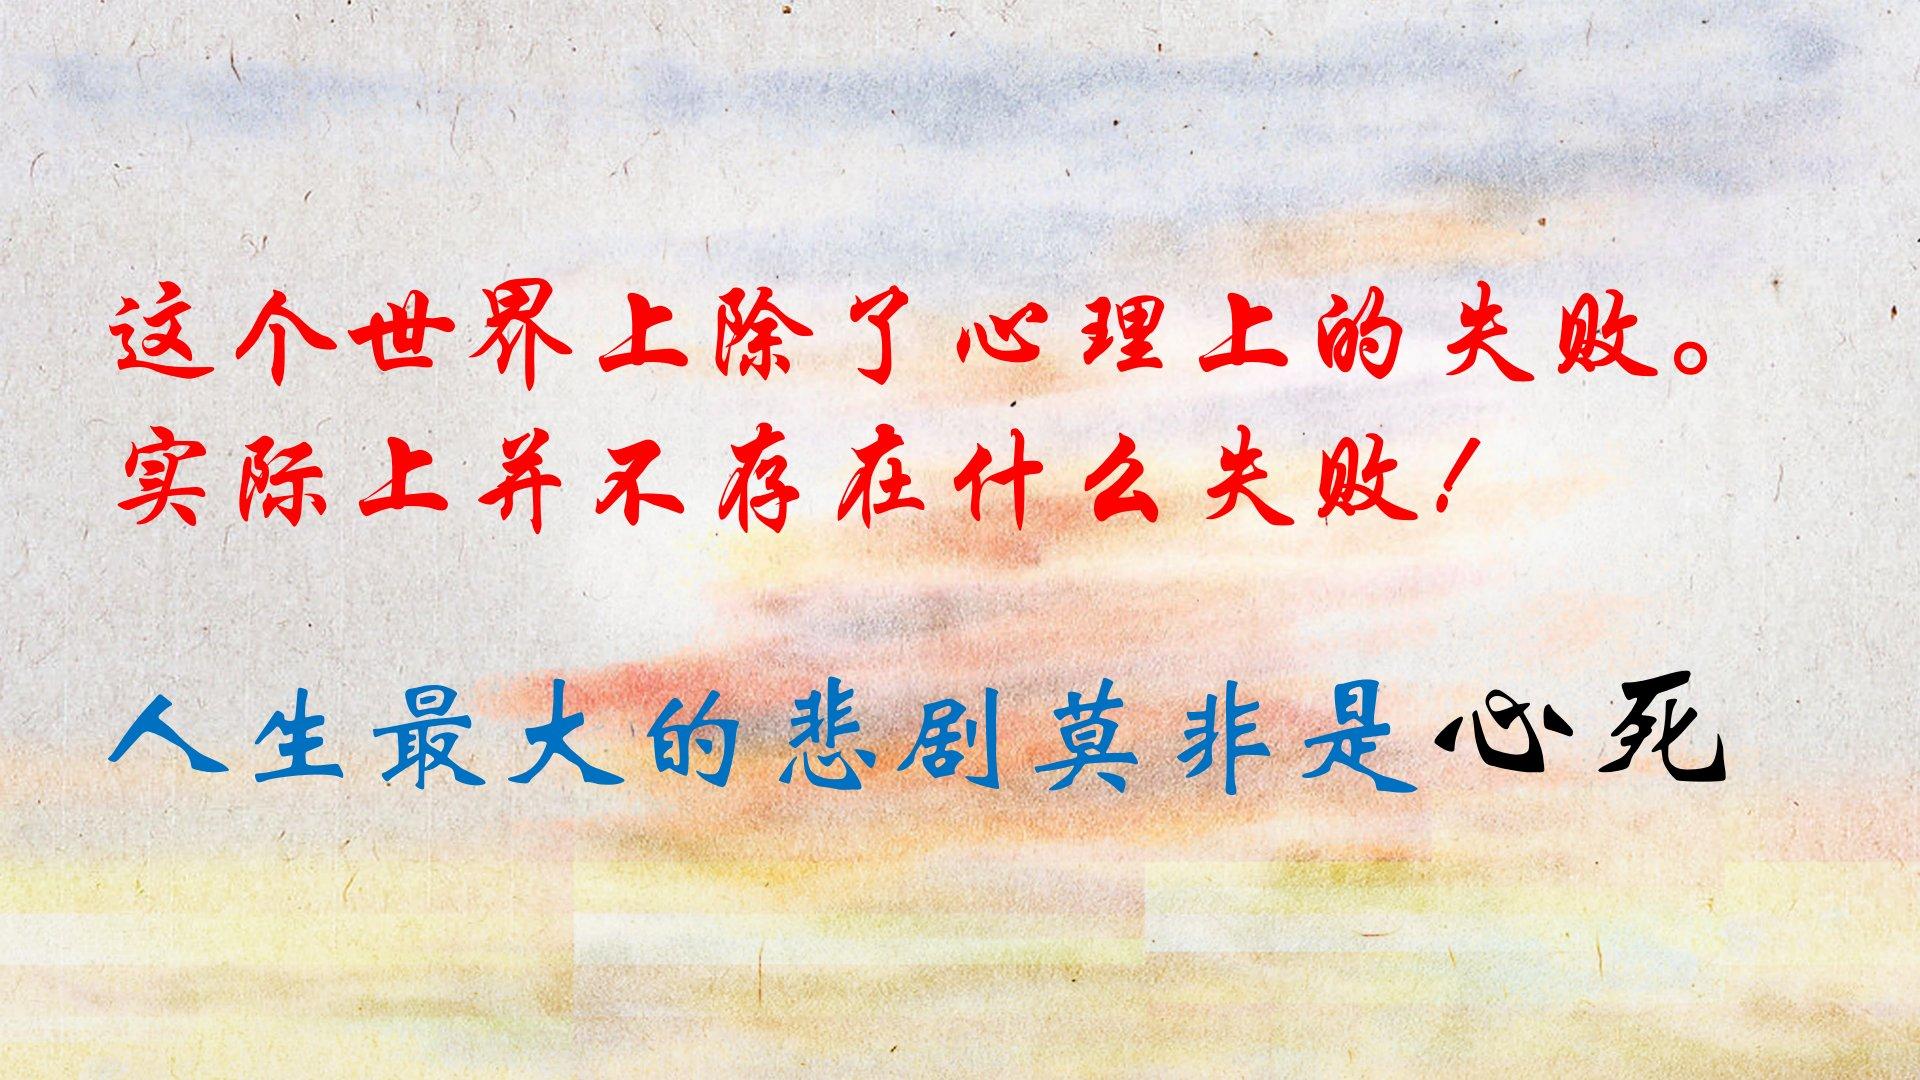 这个世界上除了心理上的失败。
实际上并不存在什么失败！
人生最大的悲剧莫非是心死